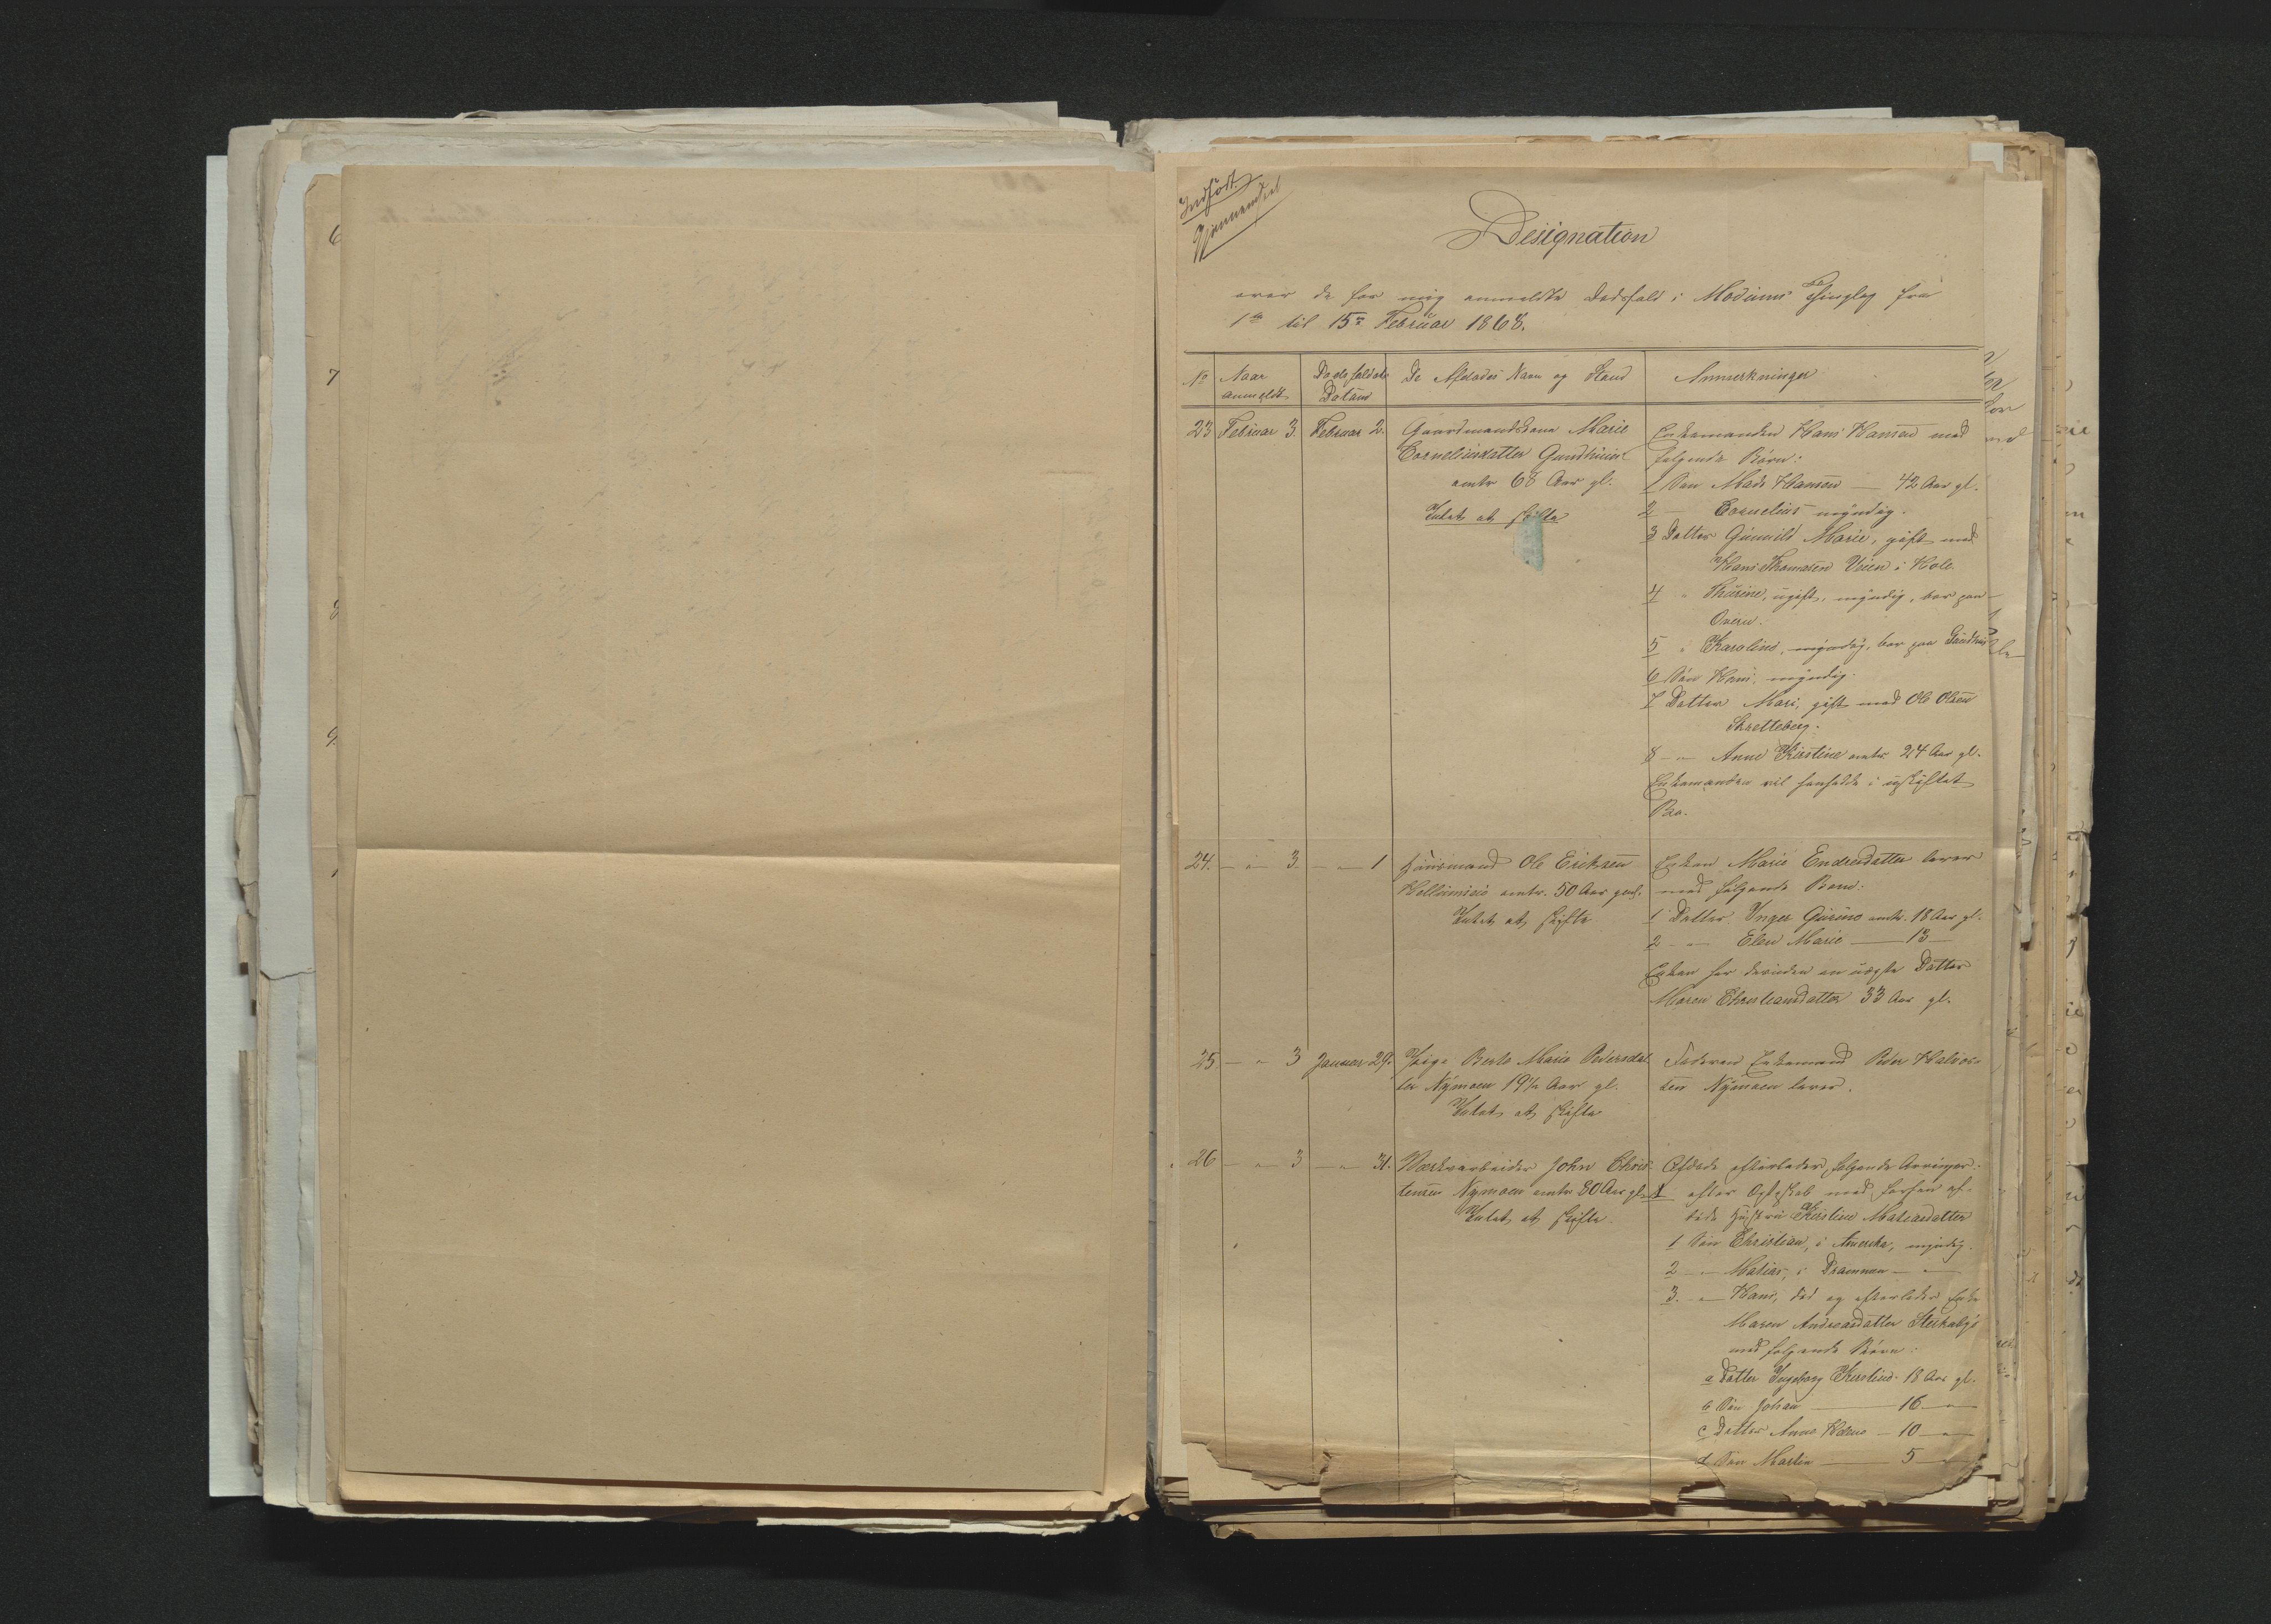 Indført
Gjennemseet
Designation
over de for mig anmeldte Dødsfald i Modums Thinglag fra
1ste til 15de Februar 1868.
No
Naar anmeldt
Dødsfaldets Datum
De Afdødes Navn og Stand
Anmærkninger
23 Februar 3. Februar 2.
Gaardmandskone Marie
Corneliusdatter Gundhuus
omtr 68 Aar gl.
Intet at skifte
Enkemanden Hans Hansen med
følgende Børn:
1 Søn Mads Hansen — 42 Aar gl.
2 — Cornelius myndig.
3 Datter Gunnild Marie, gift med
Hans Thomasen Veien i Hole.
4 " Thorine, ugift, myndig, boer paa
Overn.
5 " Karoline, myndig, boer paa Gundhuus
6 Søn Hans, myndig.
7 Datter Mari, gift med Ole Olsen
Skretteberg.
8 — " — Anne Kirstine omtr. 24 Aar gl.
Enkemanden vil hensidde i uskiftet
Bo.
24. — " — 3. — " — 1
Huusmand Ole Eriksen
omtr. 50 Aar gml.
Intet at skifte
Enken Marie Endresdatter lever
med følgende Børn:
1 Datter Inger Gurine omtr. 18 Aar gl.
2 — " — Elen Marie — 13 —
Enken har desuden en uægte Datter
Maren Christiansdatter 33 Aar gl.
25 — " — 3 Januar 29.
Pige Berte Marie Pedersdat-
ter Nymoen 19½ Aar gl.
Intet at skifte
Faderen Enkemand Peder Halvor-
sen Nymoen lever.
26 — " — 3 — " — 31.
Værksarbeider John Chris-
tensen Nymoen omtr 80 Aar gl.
Intet at skifte
Afdøde efterlader følgende Arvinger:
efter Egteskab med forhen af-
døde Hustru Kirstine Matiasdatter
1 Søn Christian, i Amerika, myndig.
2 — " — Matias, i Drammen — " —
3. — " — Hans, død og efterlader Enke
Maren Andreasdatter Sterkebye
med følgende Børn:
a Datter Ingeborg Kirstine 18 Aar gl.
b Søn Johan — 16 — " —
c Datter Anne Helene — 10 — " —
d Søn Martin — 5 — " —